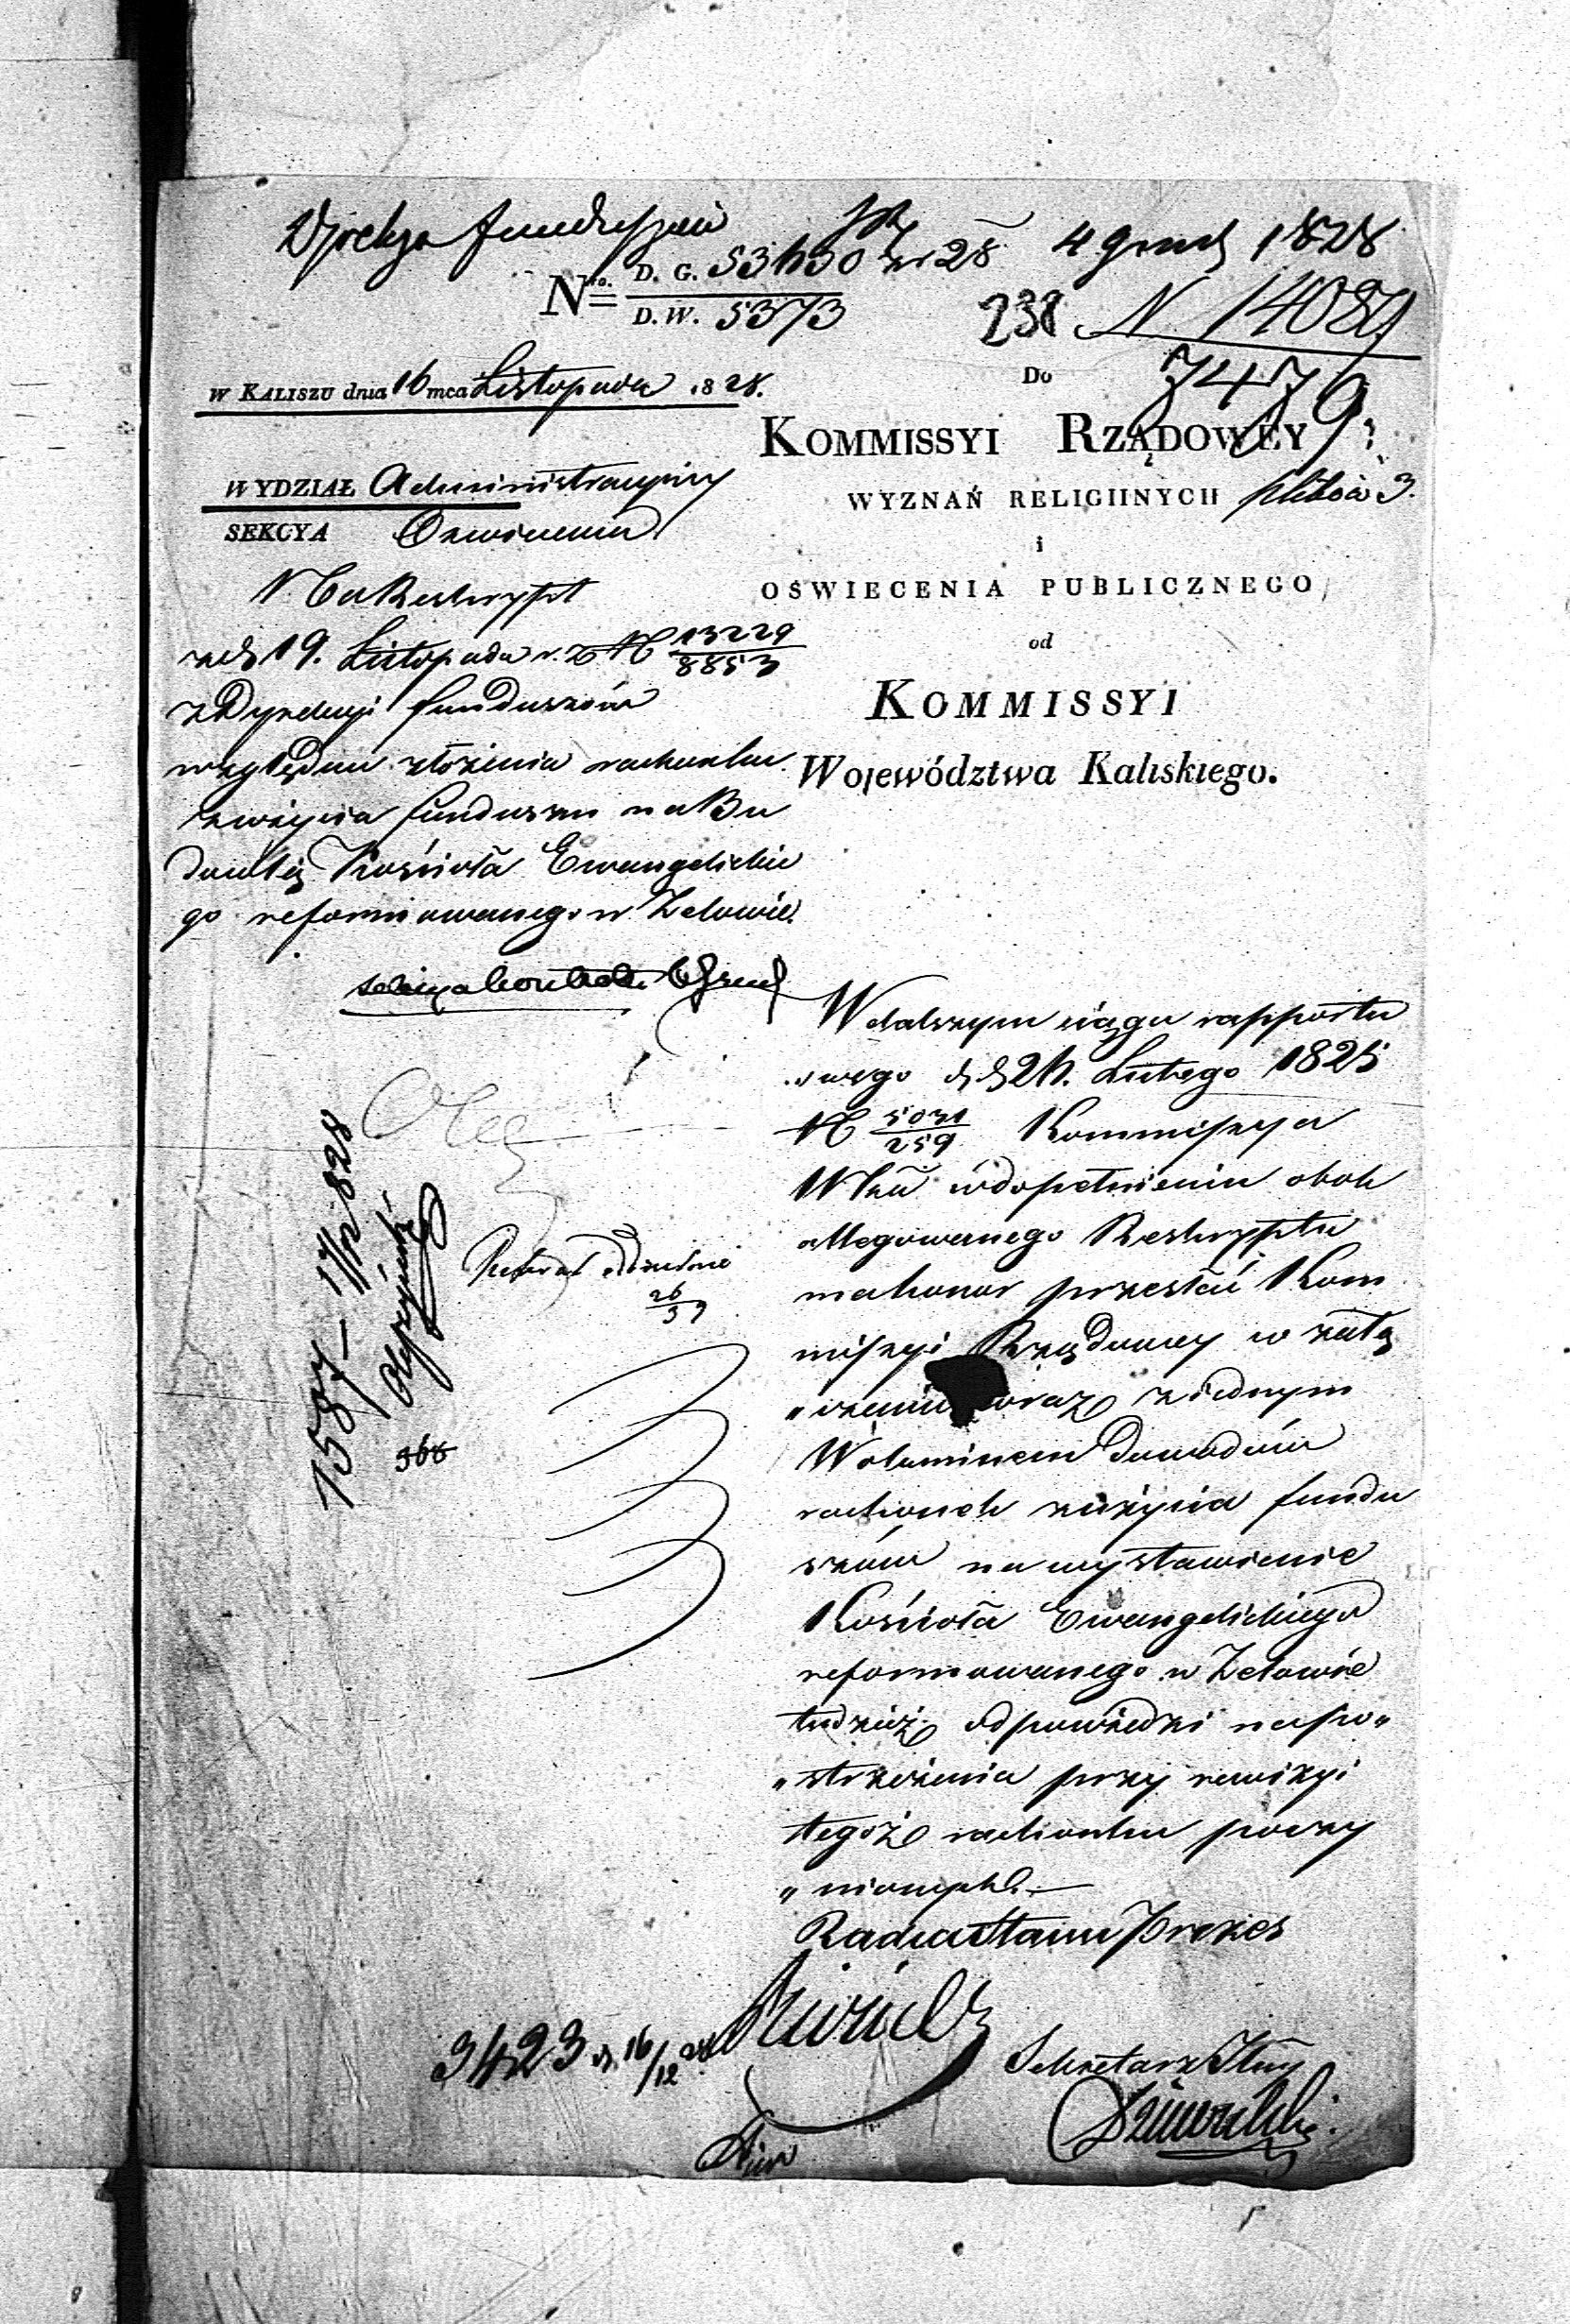 Dyrekcya funduszów
4 Grud 1828
No. D. G. 53450
D. W. 5373
238 N 14087
7479
w Kaliszu dnia 16 mca Listopada 1828.
Do
Kommissyi Rządowey
Wyznań Religiinych
plików 3.
i
Oświecenia Publicznego
od
Kommissyi
Województwa Kaliskiego.
Wydział Administracyjny
Sekcya Oświecenia
Na Reskrypt
z d. 19. Listopada r. b. N 13229
8853
z Dyrekcyi funduszów
względem złożenia rachunku
z użycia funduszu na Bu
dowlę Kościoła Ewangelickie
go reformowanego w Zelowie.
W dalszym ciągu rapportu
swego z d. 24. Lutego 1825
N 5031
259 Kommissya
Wdka w dopełnieniu obok
allegowanego Reskryptu
ma honor przesłać Kom
missyi Rządowey w załą
"czeniu wraz z iednym
Woluminem Dowodów
rachunek z użycia fundu
szów na wystawienie
Kościoła Ewangelickiego
reformowanego w Zelowie
tudzież odpowiedzi na spo"
"strzeżenia przy rewizyi
tegoż rachunku poczy
"nionych.—
Radca Stanu Prezes
Sekretarz Jlny
1587 — 17/12 828
368
26
39
3423 d. 16/12 28